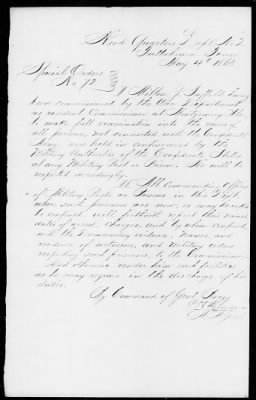 Head Quarters Dept No 2
Tullahoma Tenn
May 4th 1863
Special Orders
No 72
I William J. having
been commissioned by the War Department
as Commissioner at Montgomery Ala
to make full examination into the cases of
all persons, not connected with the Confederate
Army now held in confinement by the
Military Authorities of the Confederate States
at any Military Post or Prison. He will be
respected accordingly.
II All Commanding Officers
of Military Posts or Prisons in this Dept
where such prisoners are now, or may hereafter
be confined will forthwith report their names
dates of arrest, charges, and by whom confined
with the documentary evidence. Names and
residence of witnesses, and Military orders
respecting such prisoners, to the Commissioner
And otherwise render him such facilities
as he may require in the discharge of his
duties.
By Command of Genl Bragg
A. A. Genl